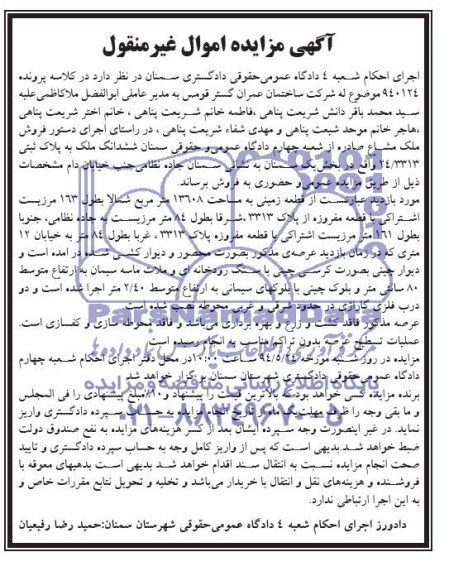 آگهی مزایده اموال غیرمنقول
اجرای احکام شعبه ۴ دادگاه عمومی‌حقوقی دادگستری سمنان در نظر دارد در کلاسه پرونده
۹۴۰۱۲۴ موضوع له شرکت ساختمان عمران گستر قومس به مدیر عاملی ابوالفضل ملاکاظمی‌علیه
سید محمد باقر دانش شریعت پناهی ،فاطمه خانم شریعت پناهی ، خانم اختر شریعت پناهی
،هاجر خانم موحد شیعت پناهی و مهدی شفاء شریعت پناهی ، در راستای اجرای دستور فروش
ملک مشاع صادره از شعبه چهارم دادگاه عمومی‌و حقوقی سمنان ششدانگ ملک به پلاک ثبتی
۲۴/۳۳۱۳ واقع در بخش یک سمنان به نشانی سمنان جاده نظامی‌جنب خیابان دام مشخصات
ذیل از طریق مزایده عمومی‌و حضوری به فروش برساند.
مورد بازدید عبارتست از قطعه زمینی به مساحت ۱۳۶۰۸ متر مربع شمالا بطول ۱۶۳ مرزیست
اشتراکی با قطعه مفروزه از پلاک ۳۳۱۳ ،شرقا بطول ۸۴ متر مرزیست به جاده نظامی، جنوبا
بطول ۱۶۱ متر مرزیست اشتراکی با قطعه مفروزه پلاک ۳۳۱۳ ، غربا بطول ۸۴ متر به خیابان ۱۲
متری که در زمان بازدید عرصه‌ی مذکور بصورت محصور و دیوار کشی شده در امده است و
دیوار چینی بصورت کرسی چینی با سنگ رودخانه ای و ملات ماسه سیمان به ارتفاع متوسط
۸۰ سانتی متر و بلوک چینی با بلوکهای سیمانی به ارتفاع متوسط ۲/۴۰ متر اجرا شده است و دو
درب فلزی گاراژی در حدود شرقی و غربی محوطه نصب شده است.
عرصه مذکور فاقد کشت و زرع و بهره برداری می‌باشد و فاقد محوطه سازی و کفسازی است.
عملیات تسطیح عرصه بدون تراکم مناسب به انجام رسیده است
مزایده در روز شنبه مورخه ۹۴/۵/۲۴ ساعت ۱۰:۰۰در محل دفتر اجرای احکام شعبه چهارم
دادگاه عمومی‌حقوقی دادگستری شهرستان سمنان برگزار خواهد شد.
برنده مزایده کسی خواهد بود که بالاترین قیمت را پیشنهاد و ۱۰/مبلغ پیشنهادی را فی المجلس
و ما بقی وجه را ظرف مهلت یک ماه از تاریخ انجام مزایده به حساب سپرده دادگستری واریز
نماید. در غیر اینصورت وجه سپرده ایشان بعد از کسر هزینه‌های مزایده به نفع صندوق دولت
ضبط خواهد شد.بدیهی است که پس از واریز کامل وجه به حساب سپرده دادگستری و تایید
صحت انجام مزایده نسبت به انتقال سند اقدام خواهد شد بدیهی است بدهیهای معوقه با
فروشنده و هزینه‌های نقل و انتقال با خریدار می‌باشد و تخلیه و تحویل نتایع مقررات خاص و
به این اجرا ارتباطی ندارد.
دادورز اجرای احکام شعبه ۴ دادگاه عمومی‌حقوقی شهرستان سمنان:حمید رضا رفیعیان
ParsNamadData
پایگاه اطلاع رسانی مناقصه و مزایده
۰۲۱-۸۸۳۴۹۶۷۰-۵